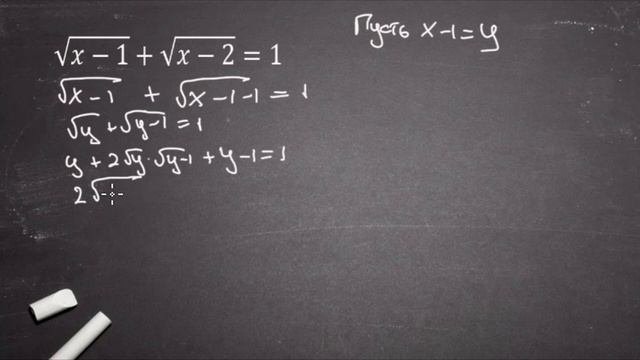 √x − 1 + √x − 2 = 1
Пусть x-1=y
√x-1 + √x-1-1 = 1
√y + √y-1 = 1
y + 2√y · √y-1 + y-1 = 1
2√